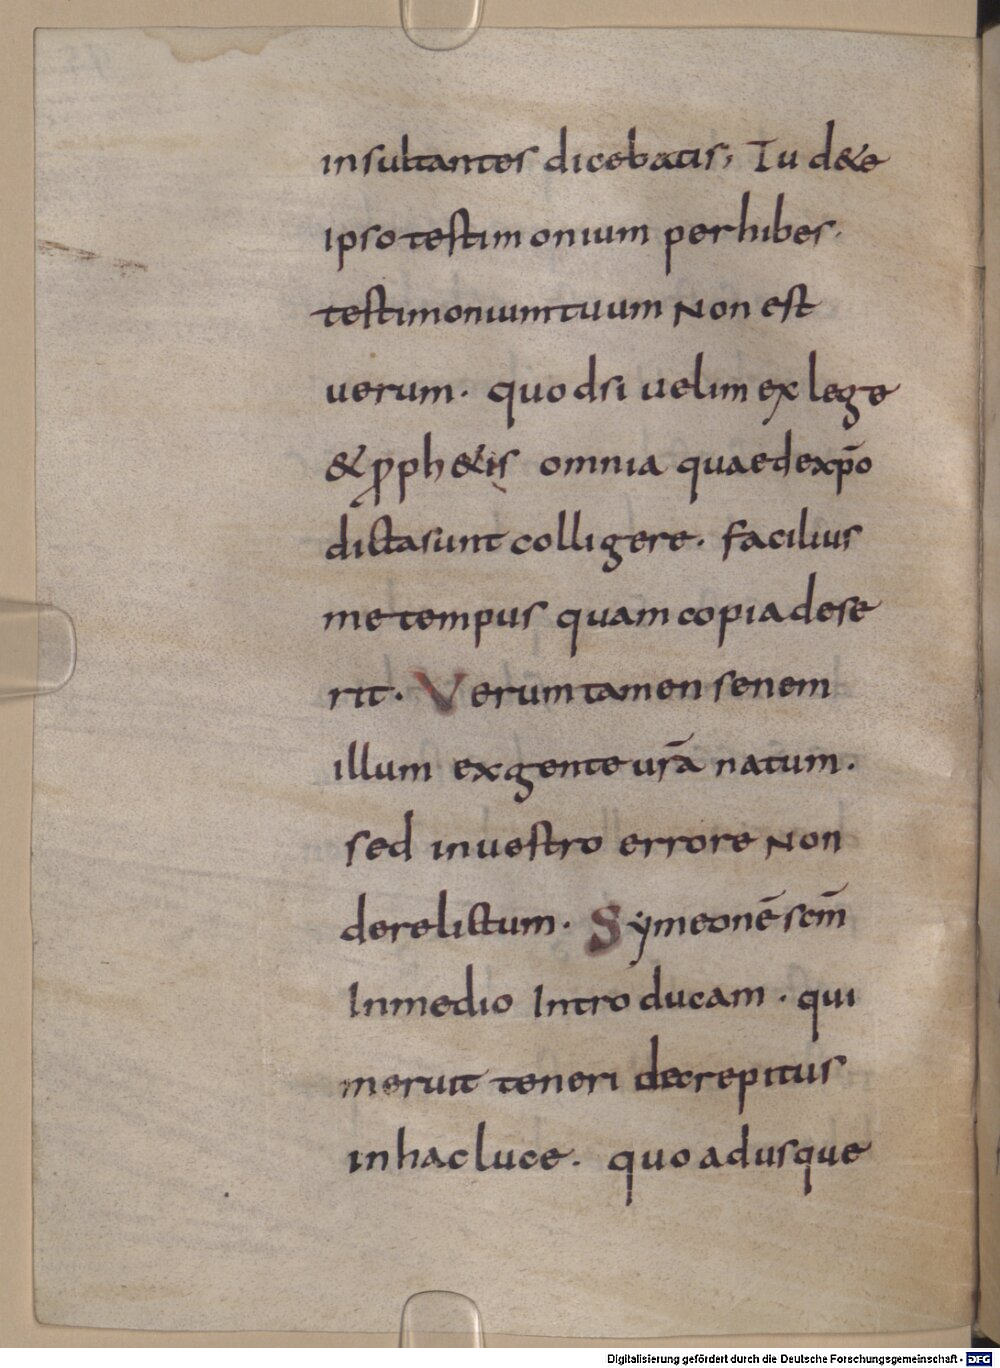 insultantes dicebatis; Tu d&e
ipso testimonium perhibes.
testimonium tuum Non est
uerum. quodsi uelim ex lege
& ꝓph&is omnia quae de xp̄o
dicta sunt colligere. facilius
me tempus quam copia dese
rit. Verumtamen senem
illum ex gente ur̄a natum.
sed in uestro errore Non
derelictum. Symeonē sc̄m
In medio Introducam. qui
meruit teneri decrepitus
in hac luce. quo adusque
Digitalisierung gefördert durch die Deutsche Forschungsgemeinschaft - DFG